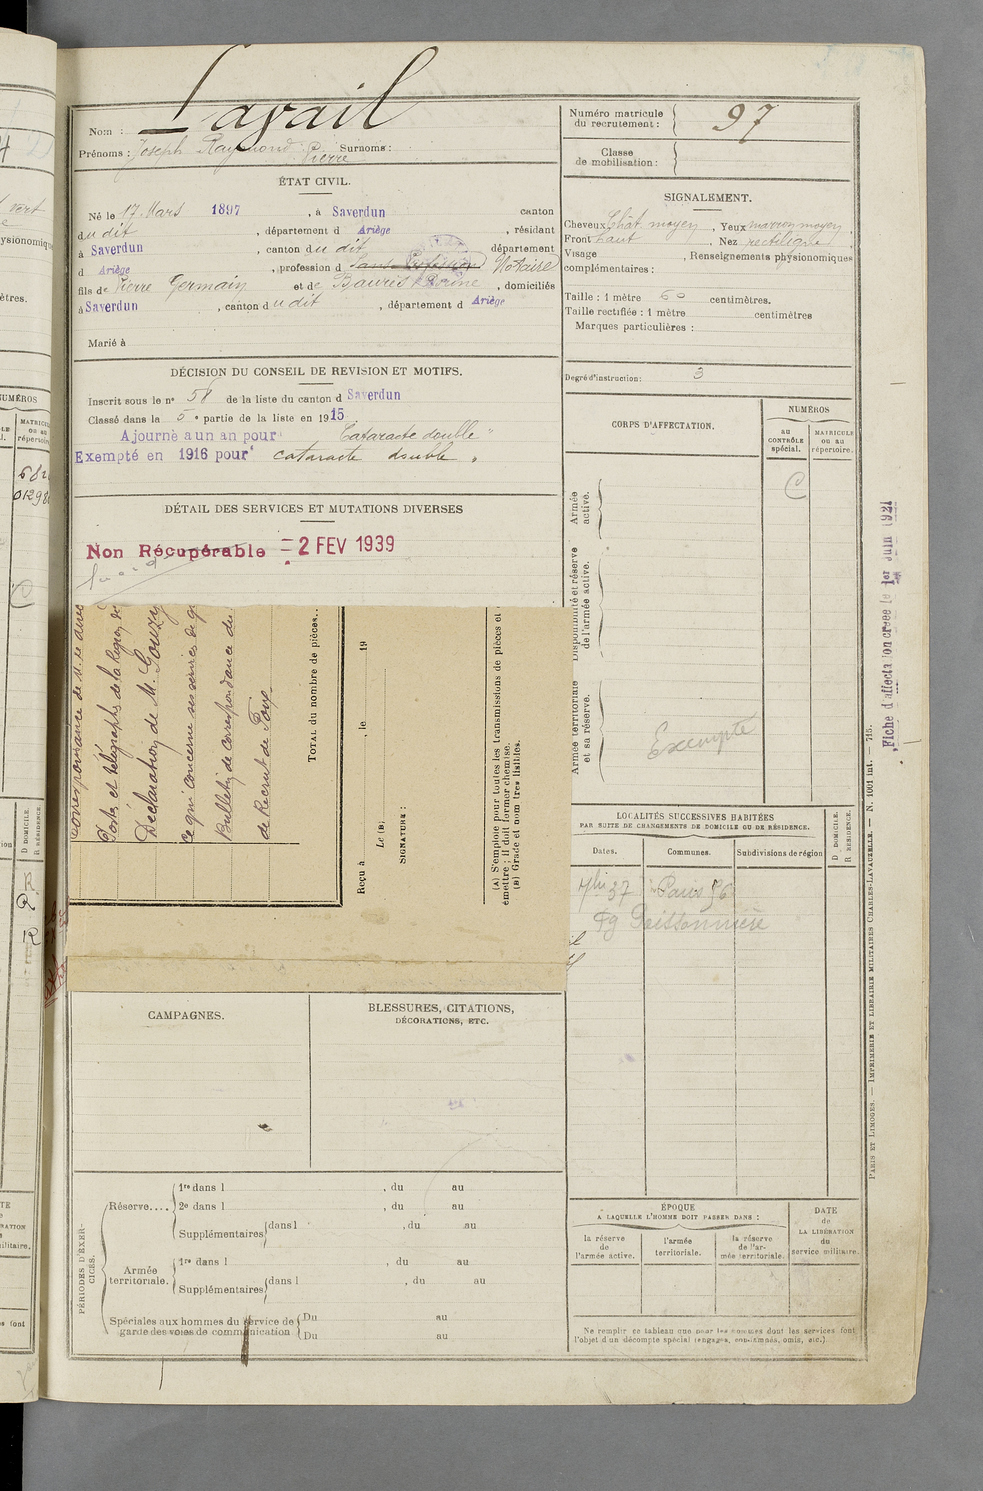 Nom : Lavail
Prénoms : Joseph Raymond Pierre Surnoms :
ÉTAT CIVIL.
Né le 17 Mars 1897, à Saverdun canton
du dit, département d Ariège, résidant
à Saverdun, canton du dit département
d Ariège, profession d Sans Profession Notaire
fils de Pierre Germain et de Bauris, domiciliés
à Saverdun, canton du dit, département d Ariège
Marié à
DÉCISION DU CONSEIL DE REVISION ET MOTIFS.
Inscrit sous le n° 58 de la liste du canton d Saverdun
Classé dans la 5e partie de la liste en 1915
Ajourné a un an pour "Cataracte double"
Exempté en 1916 pour "cataracte double"
DÉTAIL DES SERVICES ET MUTATIONS DIVERSES
Non Récupérable = 2 FEV 1939
Correspondance de M. le direc
Postes et télégraphes de la Région de
Déclaration de M. Gouzy
ce qui concerne ses services de g
Bulletin de correspondance du
de Recrut de Foix
TOTAL du nombre de pièces..
Reçu à , le 19
Le (B)
SIGNATURE :
(A) S'emploie pour toutes les transmissions de pièces et
émettre ; il doit former chemise.
(B) Grade et nom très lisibles.
CAMPAGNES.
BLESSURES, CITATIONS,
DÉCORATIONS, ETC.
PÉRIODES D'EXERCICES.
Réserve.... 1re dans l , du au
2e dans l , du au
Supplémentaires dans l , du au
Armée territoriale. 1re dans l , du au
Supplémentaires dans l , du au
Spéciales aux hommes du service de Du au
garde des voies de communication Du au
Numéro matricule
du recrutement : 97
Classe
de mobilisation :
SIGNALEMENT.
Cheveux Chât moyen, Yeux marron moyen,
Front haut, Nez rectiligne,
Visage , Renseignements physionomiques
complémentaires :
Taille : 1 mètre 60 centimètres.
Taille rectifiée : 1 mètre centimètres
Marques particulières :
Degré d'instruction : 3
CORPS D'AFFECTATION.
NUMÉROS
au
CONTRÔLE
spécial.
MATRICULE
ou au
répertoire.
Armée
active.
C
Disponibilité et réserve
de l'armée active.
Armée territoriale
et sa réserve.
Exempté
LOCALITÉS SUCCESSIVES HABITÉES
PAR SUITE DE CHANGEMENTS DE DOMICILE OU DE RÉSIDENCE.
Dates.
Communes.
Subdivisions de région
D DOMICILE.
R RÉSIDENCE.
7bre 37 à Paris 56
Fg Poissonnière
ÉPOQUE
A LAQUELLE L'HOMME DOIT PASSER DANS :
la réserve
de
l'armée active.
l'armée
territoriale.
la réserve
de l'ar-
mée territoriale.
DATE
de
LA LIBÉRATION
du
service militaire.
Ne remplir ce tableau que pour les hommes dont les services font
l'objet d'un décompte spécial (engagés, condamnés, omis, etc.)
Fiche d'affectation créée le 1er Juin 1921
PARIS ET LIMOGES. — IMPRIMERIE ET LIBRAIRIE MILITAIRES CHARLES-LAVAUZELLE. — N. 1001 int. — 715.